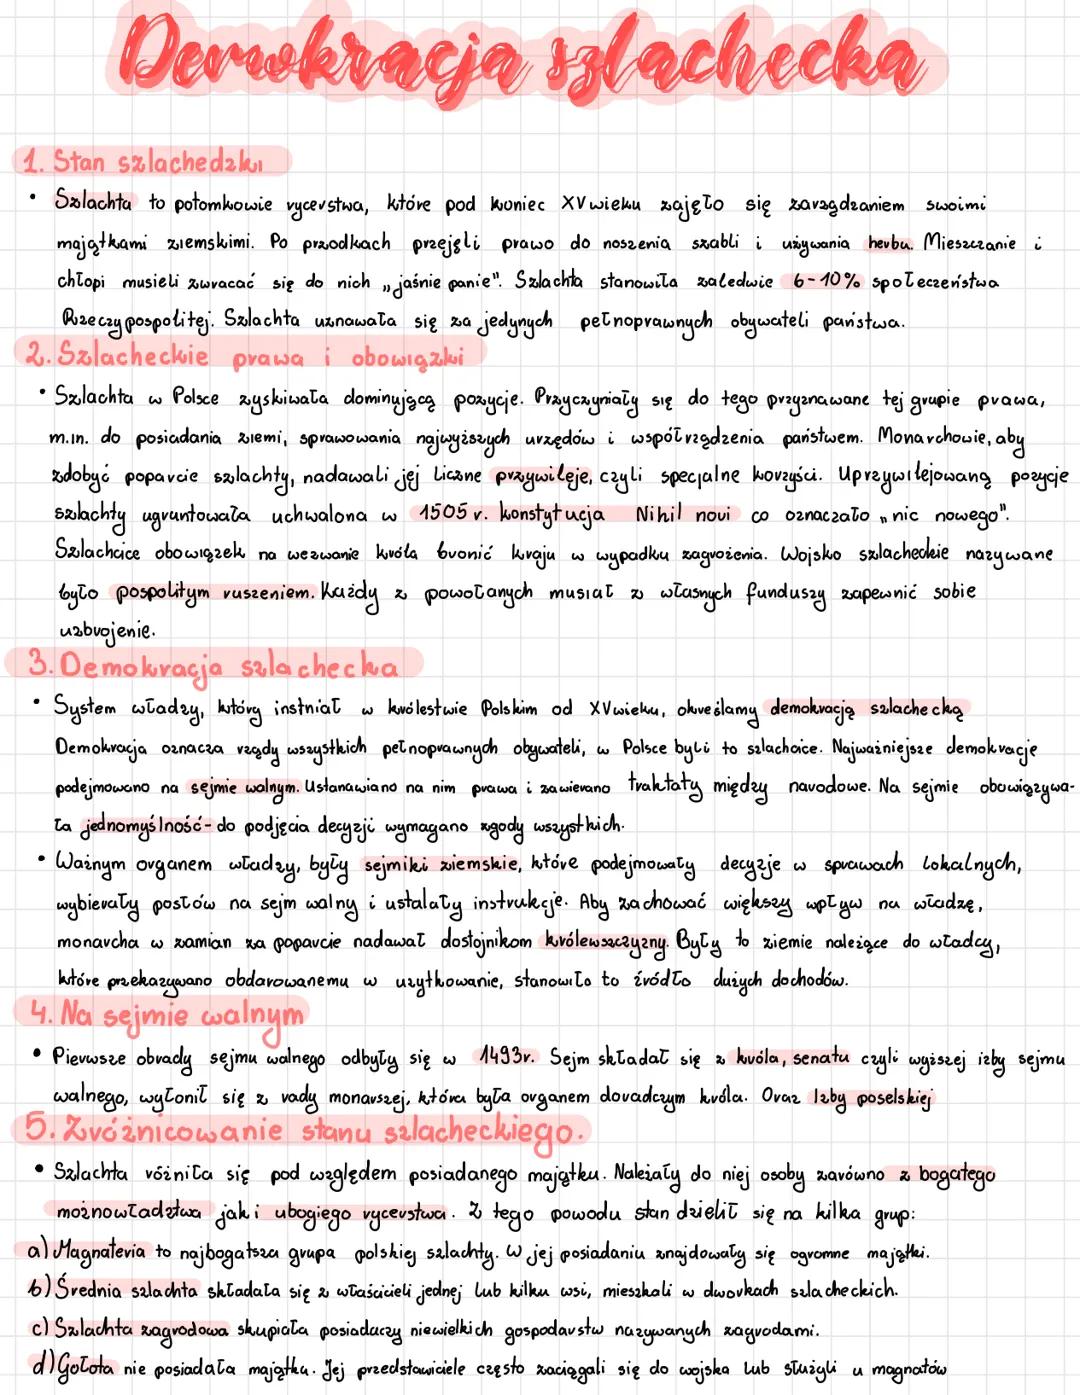 Demokracja szlachecka
1. Stan szlachedzki
• Szlachta to potomkowie rycerstwa, które pod koniec XV wieku zajęło się zarządzaniem swoimi
majątkami ziemskimi. Po przodkach przejęli prawo do noszenia szabli i używania herbu. Mieszczanie i
chłopi musieli zwracać się do nich „jaśnie panie". Szlachta stanowiła zaledwie 6-10% społeczeństwa
Rzeczypospolitej. Szlachta uznawała się za jedynych pełnoprawnych obywateli państwa.
2. Szlacheckie prawa i obowiązki
• Szlachta w Polsce zyskiwała dominującą pozycje. Przyczyniały się do tego przyznawane tej grupie prawa,
m.in. do posiadania ziemi, sprawowania najwyższych urzędów i współrządzenia państwem. Monarchowie, aby
zdobyć poparcie szlachty, nadawali jej liczne przywileje, czyli specjalne korzyści. Uprzywilejowaną pozycje
szlachty ugruntowała uchwalona w 1505 r. konstytucja Nihil novi co oznaczało „nic nowego".
Szlachcice obowiązek na wezwanie króla bronić kraju w wypadku zagrożenia. Wojsko szlacheckie nazywane
było pospolitym ruszeniem. Każdy z powołanych musiał z własnych funduszy zapewnić sobie
uzbrojenie.
3. Demokracja szlachecka
• System władzy, który instniał w królestwie Polskim od XV wieku, określamy demokracją szlachecką
Demokracja oznacza rządy wszystkich pełnoprawnych obywateli, w Polsce byli to szlachcice. Najważniejsze demokracje
podejmowano na sejmie walnym. Ustanawiano na nim prawa i zawierano traktaty między narodowe. Na sejmie obowiązywa-
ła jednomyślność- do podjęcia decyzji wymagano zgody wszystkich.
• Ważnym organem władzy, były sejmiki ziemskie, które podejmowały decyzje w sprawach lokalnych,
wybierały posłów na sejm walny i ustalały instrukcje. Aby zachować większy wpływ na władzę,
monarcha w zamian za poparcie nadawał dostojnikom królewszczyzny. Były to ziemie należące do władcy,
które przekazywano obdarowanemu w użytkowanie, stanowiło to źródło dużych dochodów.
4. Na sejmie walnym
• Pierwsze obrady sejmu walnego odbyły się w 1493r. Sejm składał się z króla, senatu czyli wyższej izby sejmu
walnego, wyłonił się z rady monarszej, która była organem doradczym króla. Oraz Izby poselskiej
5. Zróżnicowanie stanu szlacheckiego.
• Szlachta różniła się pod względem posiadanego majątku. Należały do niej osoby zarówno z bogatego
możnowładztwa jak i ubogiego rycerstwa. Z tego powodu stan dzielił się na kilka grup:
a) Magnateria to najbogatsza grupa polskiej szlachty. W jej posiadaniu znajdowały się ogromne majątki.
b) Średnia szlachta składała się z właścicieli jednej lub kilku wsi, mieszkali w dworkach szlacheckich.
c) Szlachta zagrodowa skupiała posiadaczy niewielkich gospodarstw nazywanych zagrodami.
d) Gołota nie posiadała majątku. Jej przedstawiciele często zaciągali się do wojska lub służyli u magnatów